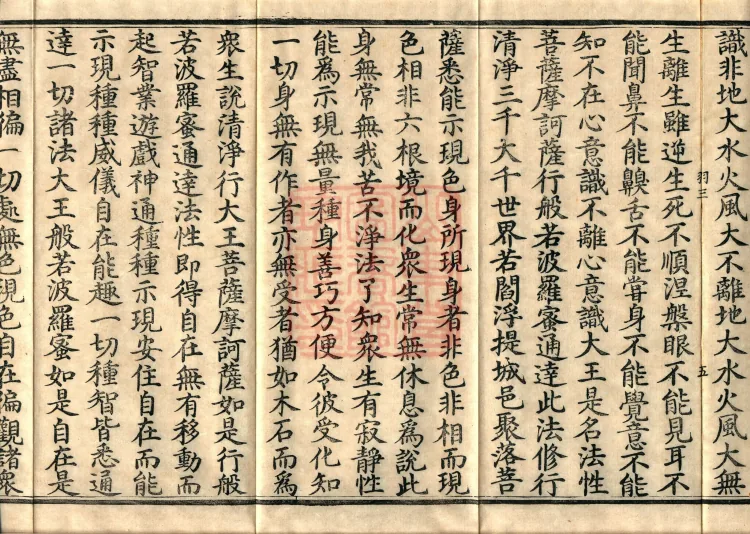 識非地大水火風大不離地大水火風大無
羽三 五
生離生雖逆生死不順涅槃眼不能見耳不
能聞鼻不能齅舌不能甞身不能覺意不能
知不在心意識不離心意識大王是名法性
菩薩摩訶薩行般若波羅蜜通達此法修行
清淨三千大千世界若閻浮提城邑聚落菩
薩悉能示現色身所現身者非色非相而現
色相非六根境而化衆生常無休息爲說此
身無常無我苦不淨法了知衆生有寂靜性
能爲示現無量種身善巧方便令彼受化知
一切身無有作者亦無受者猶如木石而爲
衆生說清淨行大王菩薩摩訶薩如是行般
若波羅蜜通達法性即得自在無有移動而
起智業遊戲神通種種示現安住自在而能
示現種種威儀自在能趣一切種智皆悉通
達一切諸法大王般若波羅蜜如是自在是
無盡相徧一切處無色現色自在徧觀諸衆